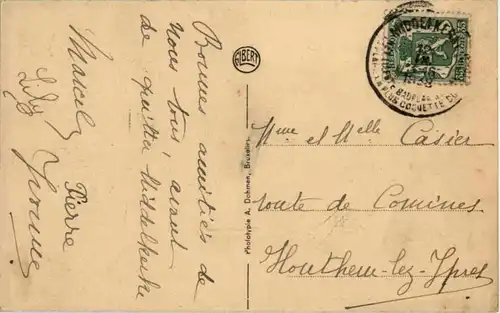 Bonnes amitiés de
nous tous, avant
de quitter Middelkerke
Marcel
Pierre
Yvonne
ALBERT
Phototypie A. Dohmen, Bruxelles
MIDDELKERKE
Mme et Melle Casier
route de Comines
Houthem-lez-Ypres